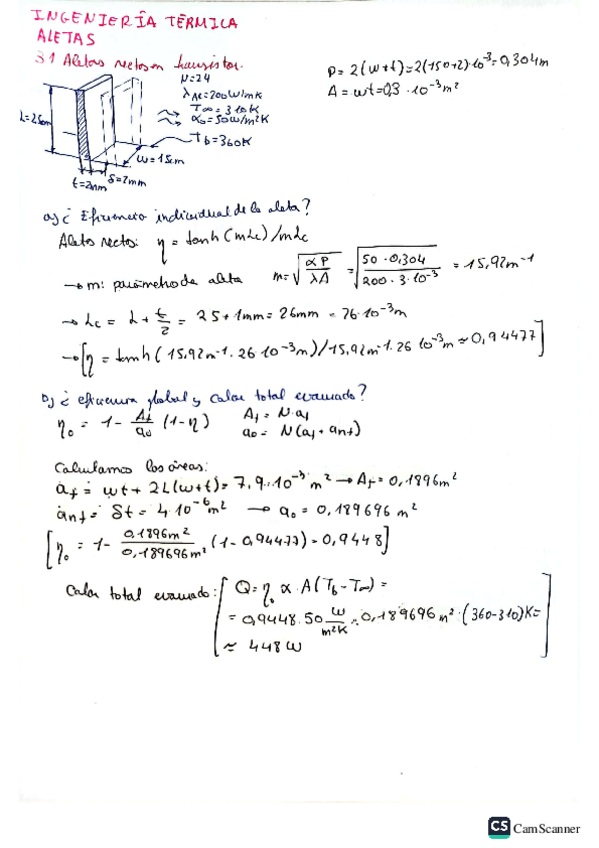 INGENIERÍA TÉRMICA
ALETAS
3.1 Aletas rectas en transistor.
N=24
λ_Al=200W/mK
T∞=310K
α₀=50W/m²K
T_b=360K
L=25mm
w=15cm
t=2mm
δ=2mm
P=2(w+t)=2(150+2)·10⁻³=0,304m
A=wt=0,3·10⁻³m²
a) ¿Eficiencia individual de la aleta?
Aleta recta: η = tanh(mLc)/mLc
→ m: parámetro de aleta m=√(αP/λA) = √(50·0,304/200·3·10⁻³) = 15,92m⁻¹
→ Lc = L+t/2 = 25+1mm=26mm=26·10⁻³m
→ [η = tanh(15,92m⁻¹·26·10⁻³m)/15,92m⁻¹·26·10⁻³m ≈ 0,94477]
b) ¿eficiencia global y calor total evacuado?
η₀ = 1-Af/a₀ (1-η) Af = N·af
a₀ = N(af+anf)
Calculamos las áreas:
af = wt+2L(w+t)=7,9·10⁻³m² → Af=0,1896m²
anf = δt=4·10⁻⁶m² → a₀=0,189696m²
[η₀ = 1-0,1896m²/0,189696m² (1-0,94477)=0,9448]
Calor total evacuado: [Q=η₀ α·A(Tb-T∞)=
=0,9448·50 W/m²K·0,189696m²·(360-310)K=
≈ 448W]
CS CamScanner